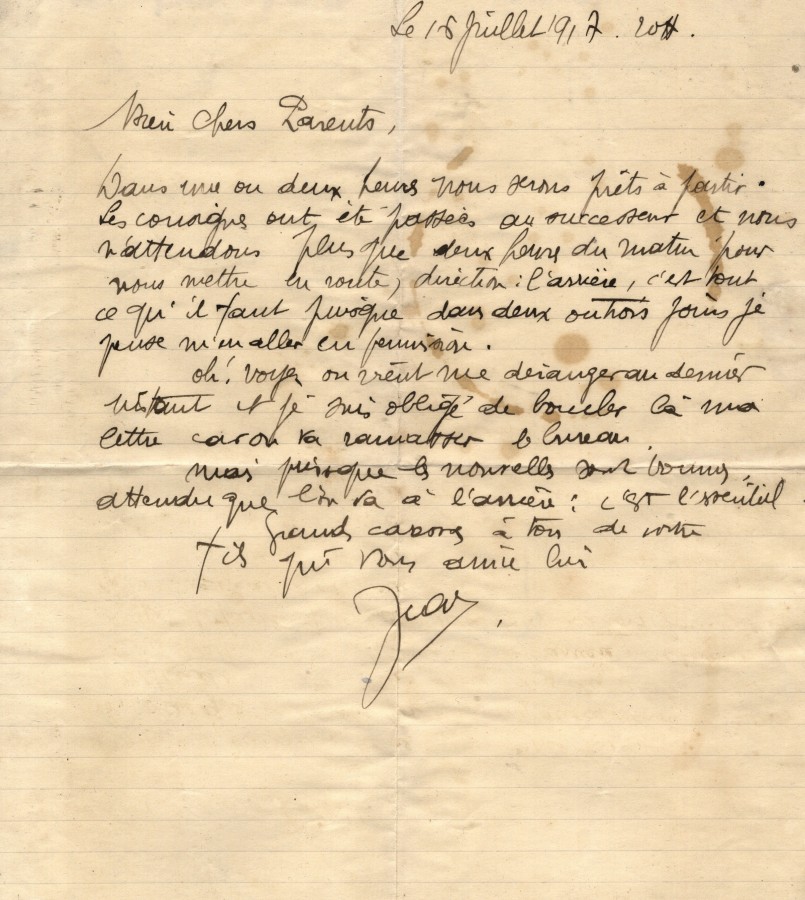 Le 18 Juillet 1917. 20H.
Bien chers Parents,
Dans une ou deux heures nous serons prêts à partir.
Les consignes ont été passées au successeur et nous
n'attendons plus que deux heures du matin pour
nous mettre en route, direction : l'arrière, c'est tout
ce qu'il faut puisque dans deux ou trois jours je
pense m'en aller en permission.
oh! voyez on vient me déranger au dernier
instant et je suis obligé de boucler là ma
lettre car on va ramasser le bureau.
mais puisque les nouvelles sont bonnes,
attendu que l'on va à l'arrière : c'est l'essentiel.
Grands à tous de votre
fils qui vous aime
Jean